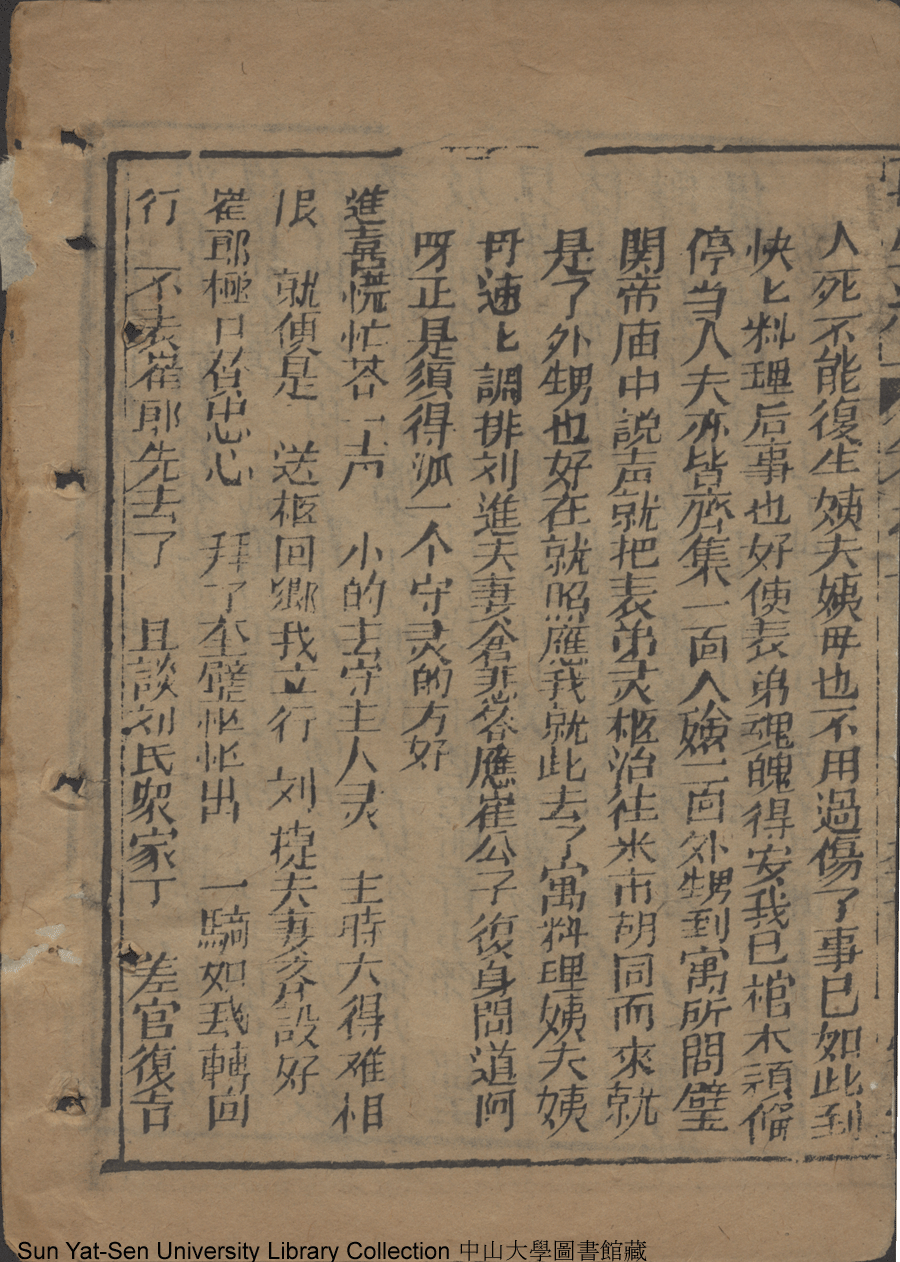 人死不能復生姨夫姨毋也不用過傷了事已如此到
快匕料理后事也好使表弟魂魄得安我已棺木須俻
停当人夫亦皆齊集一面入殮一面外甥到寓所間壁
関帝庙中説声就把表弟灵柩治往米市胡同而來就
是了外甥也好在就照應我就此去了寓料理姨夫姨
毋速匕調排刘進夫妻含悲答應崔公子復身問道阿
呀正是須得派一个守灵的方好
進喜慌忙答一声 小的去守主人灵 主時大得难相
恨 就便是 送柩回鄉我立行 刘提夫妻分設好
崔郎極口贊忠心 拜了 怅怅出 一騎如我轉回
行 不表崔郎先去了 且談刘氏衆家丁 差官復吿
Sun Yat-Sen University Library Collection 中山大學圖書館藏